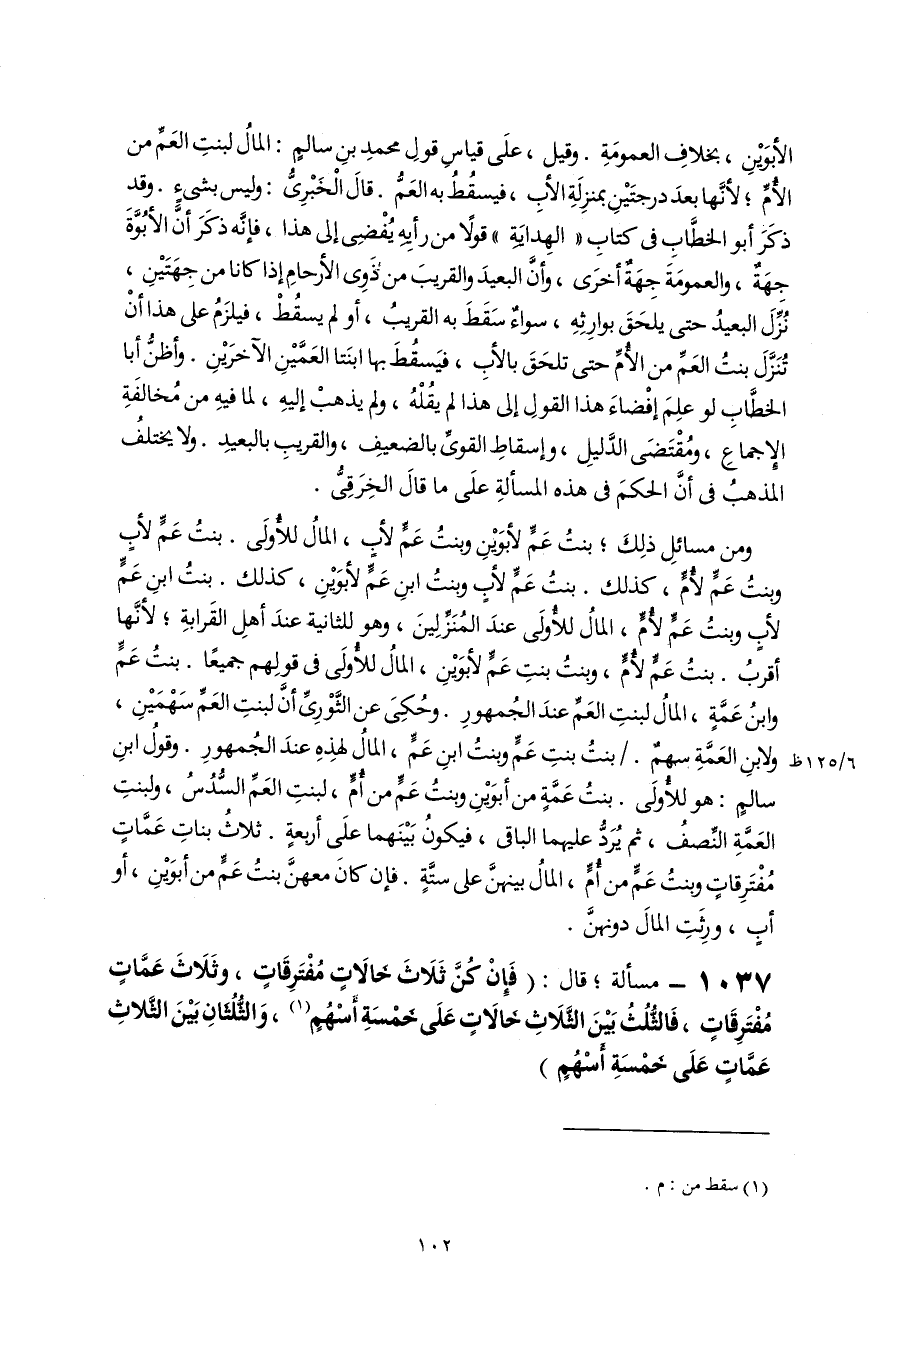 الأبَوَيْنِ ، بخلافِ العمومَةِ . وقيل ، علَى قياسِ قولِ محمدِ بنِ سالمٍ : المالُ لبنتِ العَمِّ من
الأُمِّ ؛ لأنَّها بعدَ درجتَيْنِ بمنزِلَةِ الأبِ ، فيسقُطُ به العَمُّ . قالَ الْخَبْرِىُّ : وليس بشىءٍ . وقد
ذكَرَ أبو الخطَّابِ فى كتابِ « الهدايَةِ » قولًا من رأيِه يُفْضِى إلى هذا ، فإنَّه ذكَرَ أنَّ الأبُوَّةَ
جِهَةٌ ، والعمومَةَ جِهَةٌ أخرَى ، وأنَّ البعيدَ والقريبَ من ذَوِى الأرحامِ إذا كانا من جِهَتَيْنِ ،
نُزِّلَ البعيدُ حتى يلحَقَ بوارِثِه ، سواءٌ سَقَطَ به القريبُ ، أو لم يسقُطْ ، فيلزَمُ على هذا أنْ
تُنَزَّلَ بنتُ العَمِّ من الأُمِّ حتى تلحَقَ بالأبِ ، فيَسقُطَ بها ابنَتا العَمَّيْنِ الآخرَيْنِ . وأظنُّ أبا
الخطَّابِ لو علِمَ إفْضاءَ هذا القولِ إلى هذا لم يقُلْهُ ، ولم يذهبْ إليه ، لما فيه من مُخالفَةِ
الإجماعِ ، ومُقْتَضَى الدَّليلِ ، وإسقاطِ القوىِّ بالضعيفِ ، والقريبِ بالبعيدِ . ولا يختلفُ
المذهبُ فى أنَّ الحكمَ فى هذه المسألةِ علَى ما قالَ الخِرَقِىُّ .
ومن مسائلِ ذلِكَ ؛ بنتُ عَمٍّ لأبوَيْنِ وبنتُ عَمٍّ لأبٍ ، المالُ للأُولَى . بنتُ عَمٍّ لأبٍ
وبنتُ عَمٍّ لأُمٍّ ، كذلك . بنتُ عَمٍّ لأبٍ وبنتُ ابنِ عَمٍّ لأبوَيْنِ ، كذلك . بنتُ ابنِ عَمٍّ
لأبٍ وبنتُ عَمٍّ لأُمٍّ ، المالُ للأُولَى عندَ المُنَزِّلِينَ ، وهو للثانية عندَ أهلِ القَرابةِ ؛ لأنَّها
أقربُ . بنتُ عَمٍّ لأُمٍّ ، وبنتُ بنتِ عَمٍّ لأبوَيْنِ ، المالُ للأُولَى فى قولِهم جميعًا . بنتُ عَمٍّ
وابنُ عَمَّةٍ ، المالُ لبنتِ العَمِّ عندَ الجُمهورِ . وحُكِىَ عن الثَّوْرِىِّ أنَّ لبنتِ العَمِّ سَهْمَيْنِ ،
٦/١٢٥ظ ولابنِ العَمَّةِ سهمٌ . / بنتُ بنتِ عَمٍّ وبنتُ ابنِ عَمٍّ ، المالُ لهذِه عندَ الجُمهورِ . وقولُ ابنِ
سالمٍ : هو للأُولَى . بنتُ عَمَّةٍ من أبوَيْنِ وبنتُ عَمٍّ من أُمٍّ ، لبنتِ العَمِّ السُّدُسُ ، ولبنتِ
العَمَّةِ النِّصفُ ، ثم يُرَدُّ عليهما الباقِى ، فيكونُ بَيْنَهما علَى أربعةٍ . ثلاثُ بناتِ عَمَّاتٍ
مُفْتَرِقاتٍ وبنتُ عَمٍّ من أُمٍّ ، المالُ بينهنَّ على ستَّةٍ . فإن كانَ معهنَّ بنتُ عَمٍّ من أبوَيْنِ ، أو
أبٍ ، ورثَتِ المالَ دونهنَّ .
١٠٣٧ – مسألة ؛ قال : ( فَإِنْ كُنَّ ثَلَاثَ خَالَاتٍ مُفْتَرِقَاتٍ ، وثَلَاثَ عَمَّاتٍ
مُفْتَرِقَاتٍ ، فَالثُّلُثُ بَيْنَ الثَّلَاثِ خَالَاتٍ عَلَى خَمْسَةِ أَسْهُمٍ(١) ، وَالثُّلُثَانِ بَيْنَ الثَّلَاثِ
عَمَّاتٍ عَلَى خَمْسَةِ أَسْهُمٍ )
(١) سقط من : م .
١٠٢